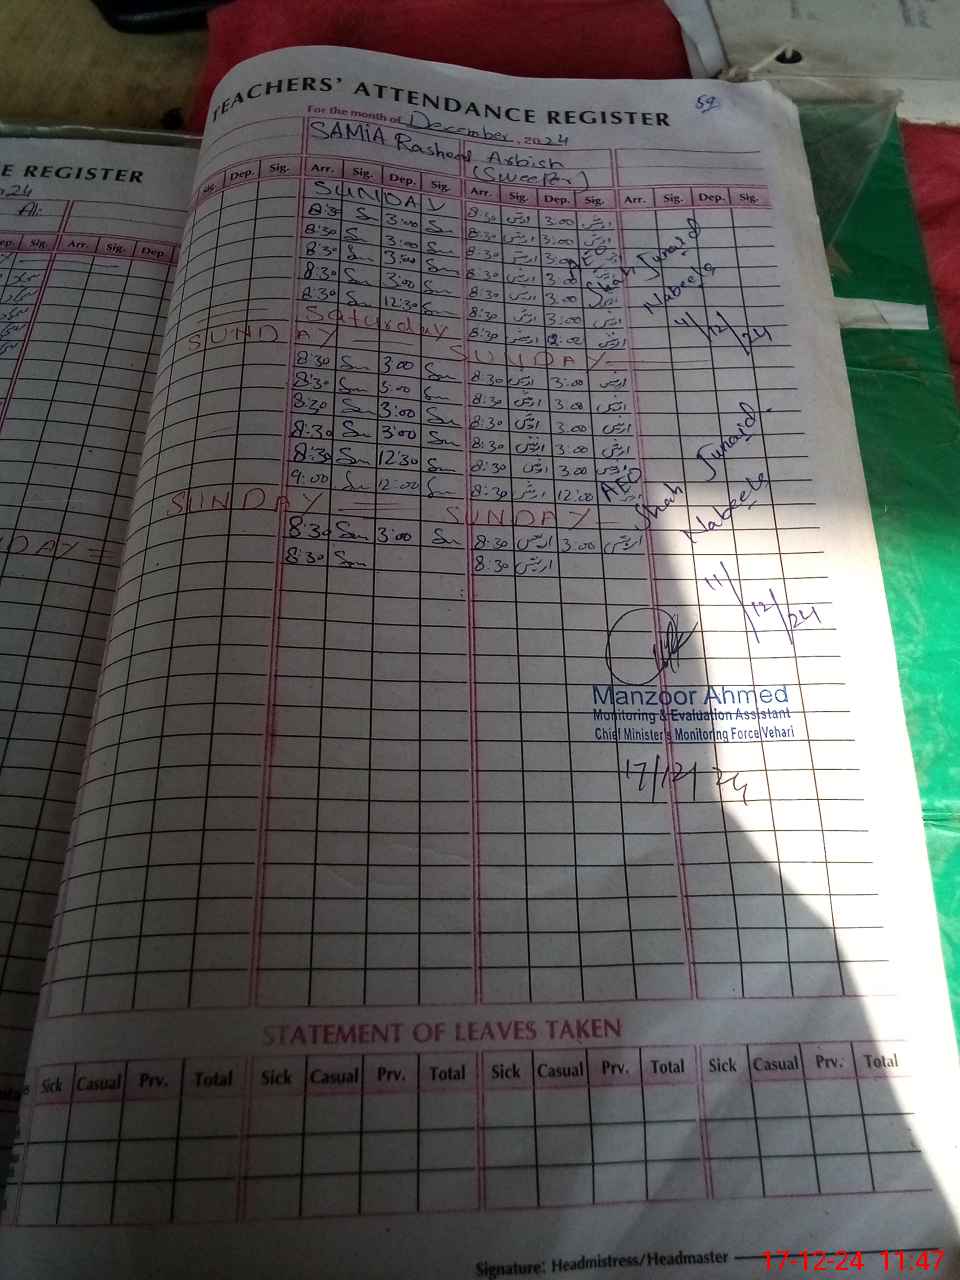 TEACHERS' ATTENDANCE REGISTER
59
For the month of December, 2024
E REGISTER
SAMIA Rasheed Arbish
(Sweeper)
Dep. Sig. Arr. Sig. Dep. Sig. Arr. Sig. Dep. Sig. Arr. Sig. Dep. Sig.
Sig. Arr. Sig. Dep
SUNDAY
8:30 Sm 3:00 Sm 8:30 ارش 3:00 ارش
8:30 Sm 3:00 Sm 8:30 ارش 3:00 ارش
8:30 Sm 3:00 Sm 8:30 ارش 3:00
8:30 Sm 3:00 Sm 8:30 ارش 3:00
8:30 Sm 12:30 Sm 8:30 ارش 3:00 ارش
Saturday 8:30 ارش ارش
SUNDAY SUNDAY
8:30 Sm 3:00 Sm 8:30 ارش 3:00 ارش
8:30 Sm 3:00 Sm 8:30 ارش 3:00 ارش
8:30 Sm 3:00 Sm 8:30 ارش 3:00 ارش
8:30 Sm 3:00 Sm 8:30 ارش 3:00 ارش
8:30 Sm 12:30 Sm 8:30 ارش 3:00 ارش
9:00 Sm 12:00 Sm 8:30 ارش 12:00
SUNDAY SUNDAY
8:30 Sm 3:00 Sm 8:30 ارش 3:00 ارش
8:30 Sm 8:30 ارش
AEO
Shah Junaid
Nabeela
4/12/24
AEO
Shah Junaid
Nabeela
11/12/24
Manzoor Ahmed
Monitoring & Evaluation Assistant
Chief Minister's Monitoring Force Vehari
17/12/24
STATEMENT OF LEAVES TAKEN
Sick Casual Prv. Total Sick Casual Prv. Total Sick Casual Prv. Total Sick Casual Prv. Total
Signature: Headmistress/Headmaster
17-12-24 11:47